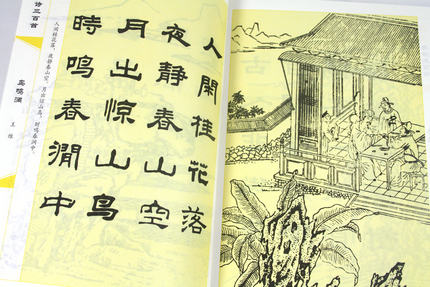 人閑桂花落
夜静春山空
月出惊山鸟
時鸣春澗中
诗三百首
鸟鸣涧
王 维
人闲桂花落，夜静春山空。月出惊山鸟，时鸣春涧中。